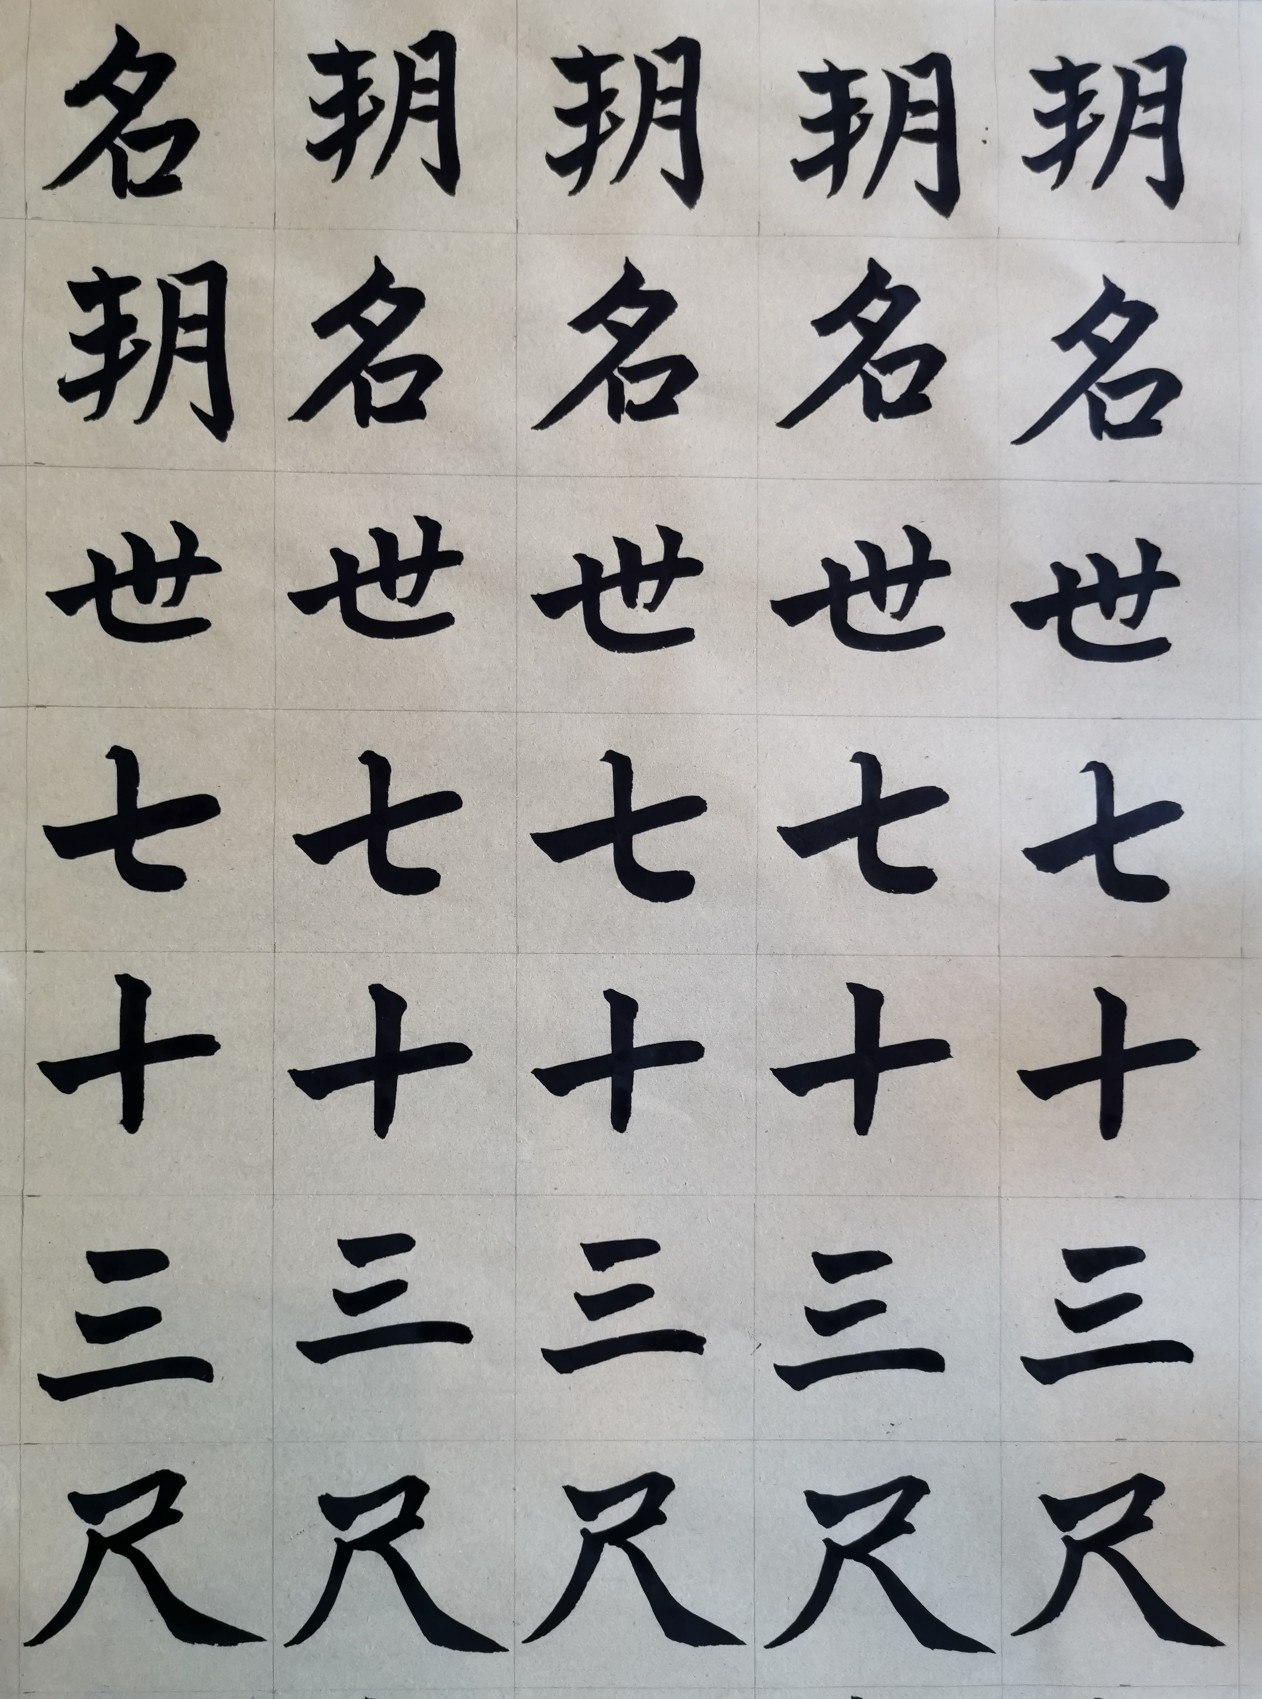 名朔朔朔朔
朔名名名名
世世世世世
七七七七七
十十十十十
三三三三三
尺尺尺尺尺